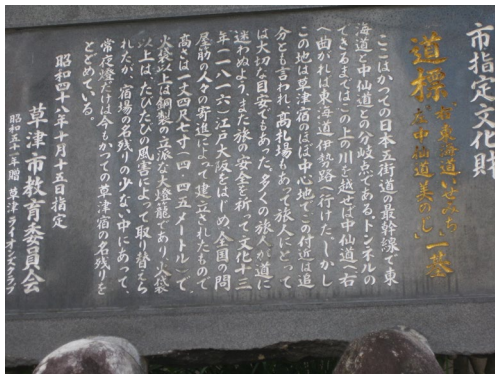 市指定文化財
道標 "右東海道いせみち" "左中仙道美のじ" 一基
ここはかつての日本五街道の最幹線で、東
海道と中仙道との分岐点である。トンネルの
できるまでは、この上の川を越せば中仙道へ、右
へ曲がれば東海道伊勢路へ行けた。しかし
この地は草津宿のほぼ中心地で、この付近は追
分とも言われ、高札場もあって旅人にとって
は大切な目安でもあった。多くの旅人が道に
迷わぬよう、また旅の安全を祈って、文化十三
年(一八一六)江戸大阪をはじめ、全国の問
屋筋の人々の寄進によって建立されたもので
高さは一丈四尺七寸(四・四五メートル)で、
火袋以上は銅製の立派な大燈籠であり、火袋
以上は、たびたびの風害によって取り替えら
れたが、宿場の名残りの少ない中にあって、
常夜燈だけは今もかつての草津宿の名残りを
とどめている。
昭和四十八年十月十五日指定
草津市教育委員会
昭和五十二年贈 草津ライオンズクラブ